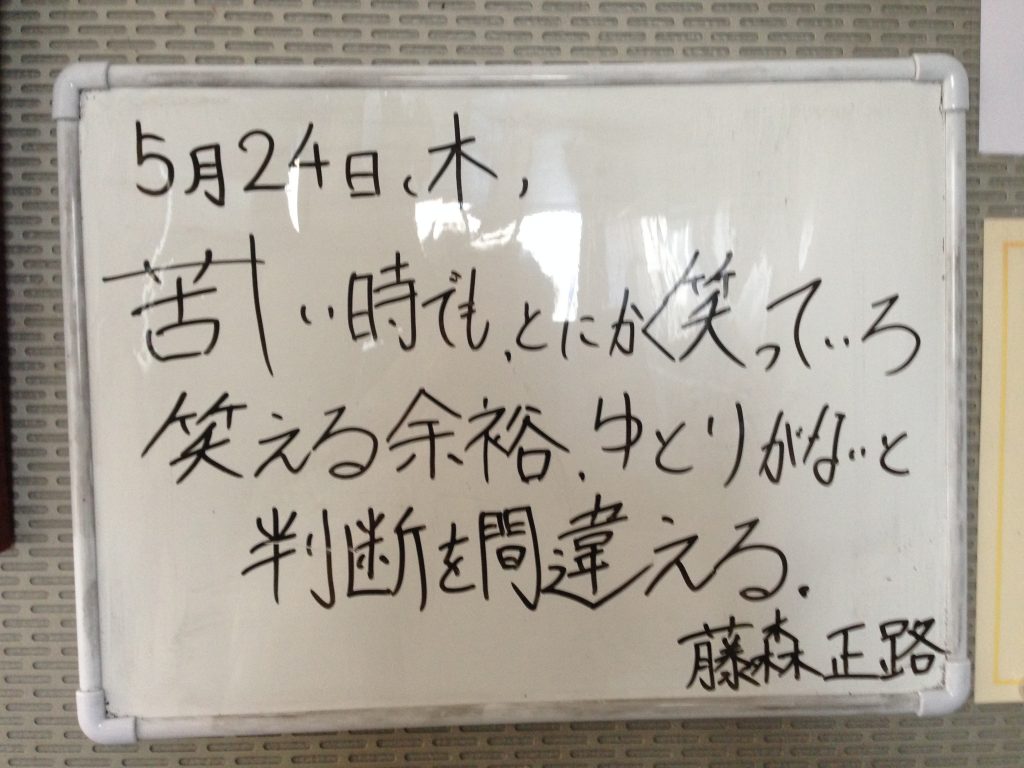 5月24日(木)
苦しい時でも、とにかく笑っていろ
笑える余裕、ゆとりがないと
判断を間違える.
藤森正路